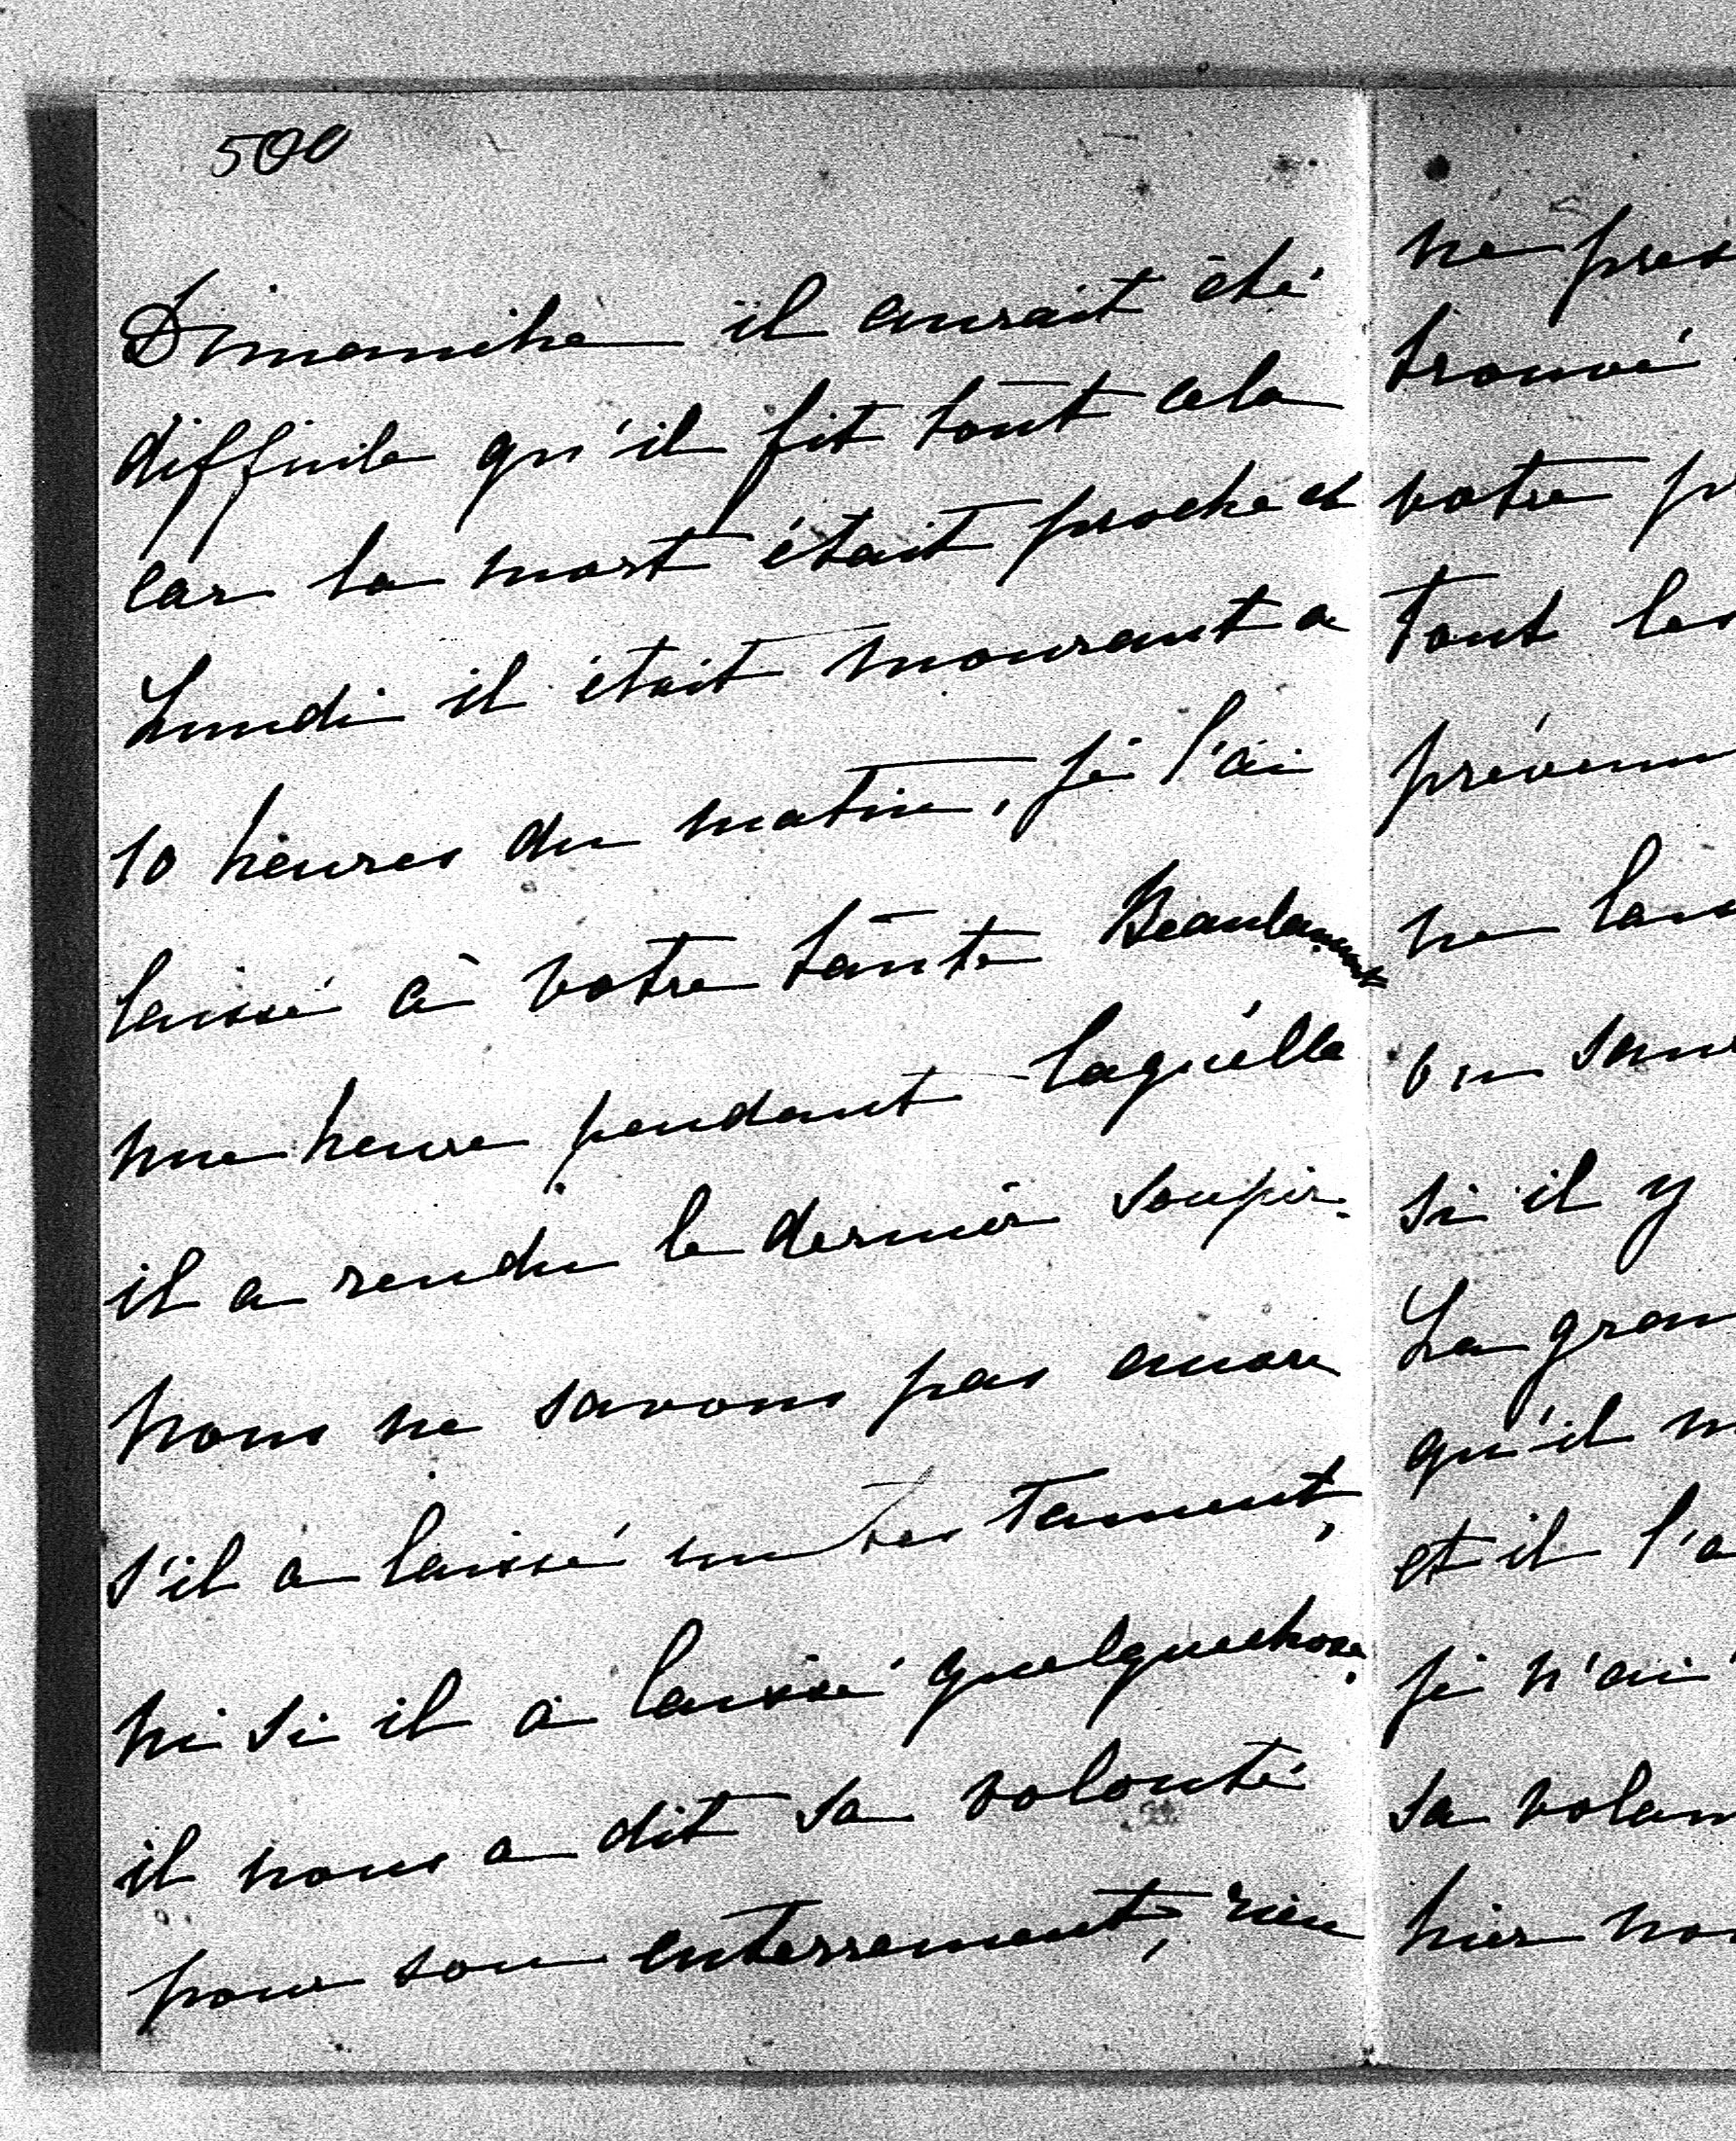 500
Dimanche il aurait été
difficile qu'il fit tout cela
car la mort était proche et
Lundi il était mourant a
10 heures du matin, je l'ai
laissé à votre tante
une heure pendant laquelle
il a rendu le dernier soupir.
nous ne savons pas encore
s'il a laissé un testament,
ni si il a laissé quelquechose,
il nous a dit sa volonté
pour son enterrement, rien
ne
trouvé
votre
tout les
ne
on
si il y
La
qu'il
et il l'a
je n'ai
sa
hier